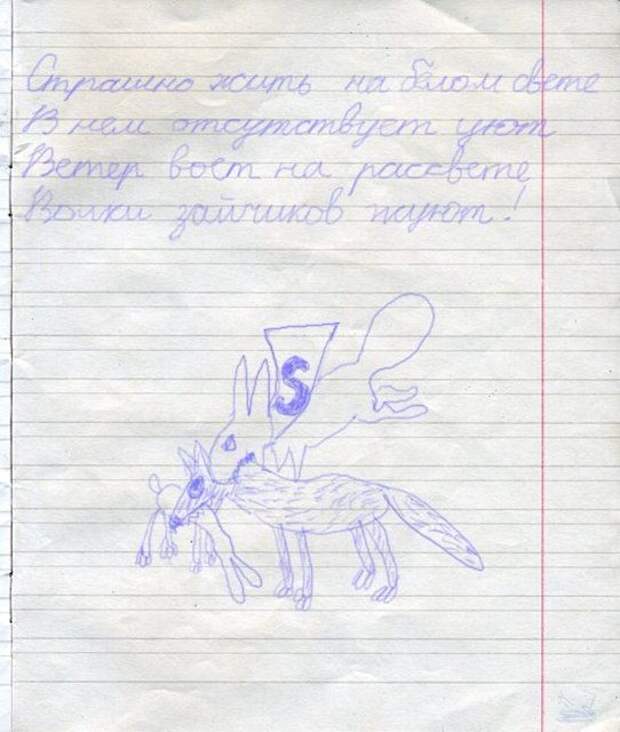 Страшно жить на белом свете
В нем отсутствует уют
Ветер воет на рассвете
Волки зайчиков жуют!
S